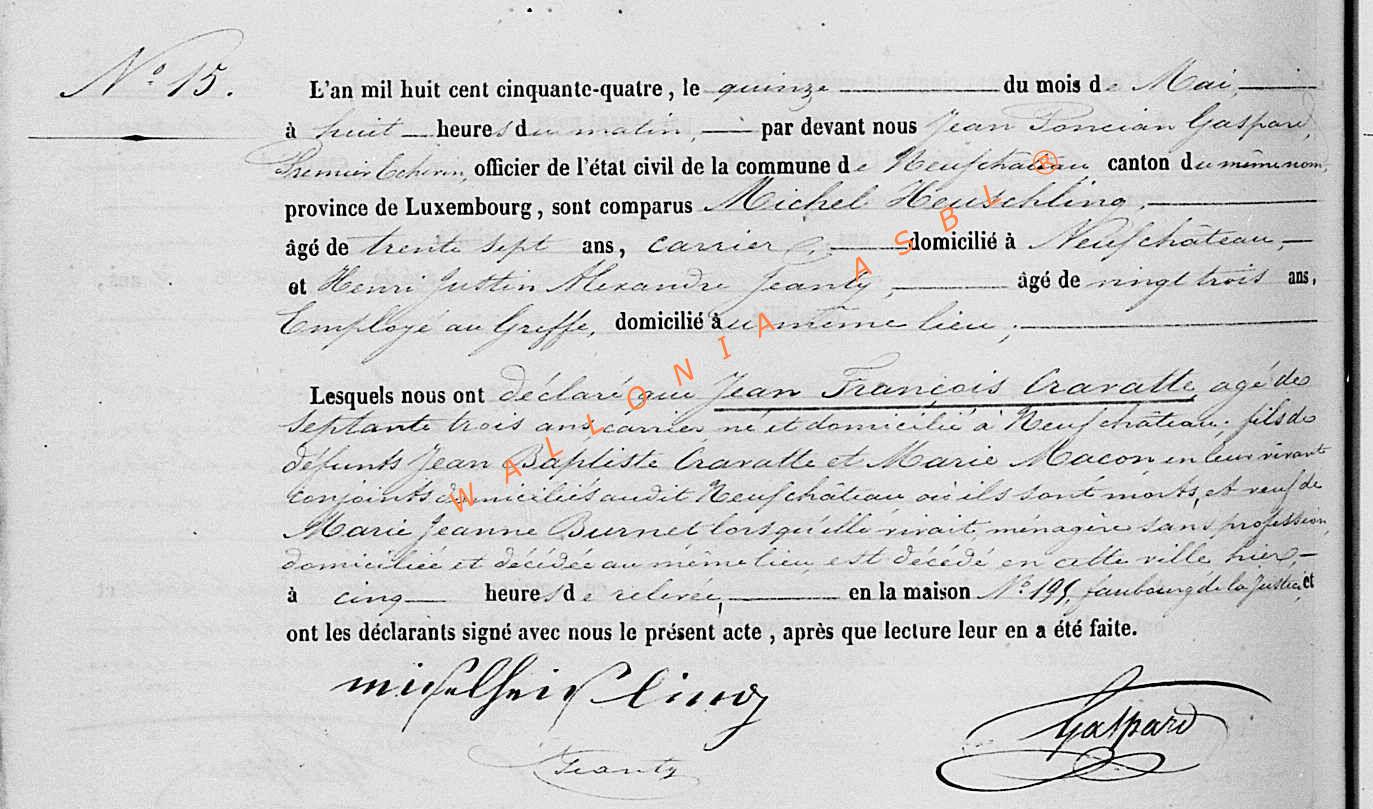 N.º 15.
L'an mil huit cent cinquante-quatre, le quinze du mois de Mai,
à huit heures du matin, par devant nous Jean Poncian Gaspard,
Premier Echevin, officier de l'état civil de la commune de Neufchateau canton du même nom,
province de Luxembourg, sont comparus Michel Heuschling,
âgé de trente sept ans, carrier, domicilié à Neufchâteau,
et Henri Justin Alexandre Jeanty, âgé de vingt trois ans,
Employé au Greffe, domicilié au même lieu;
Lesquels nous ont déclaré que Jean François Cravatte, agé de
septante trois ans, carrier né et domicilié à Neufchâteau, fils de
défunts Jean Baptiste Cravatte et Marie Macon en leur vivant
conjoints domiciliés audit Neufchâteau où ils sont morts, et veuf de
Marie Jeanne Burnet lorsqu'elle vivait, ménagère sans profession,
domiciliée et décédée au même lieu, est décédé en cette ville, hier,
à cinq heures de relevée, en la maison N.º 195, faubourg de la Justice, et
ont les déclarants signé avec nous le présent acte, après que lecture leur en a été faite.
Jeanty
Gaspard
WALLONIA ASBL ®